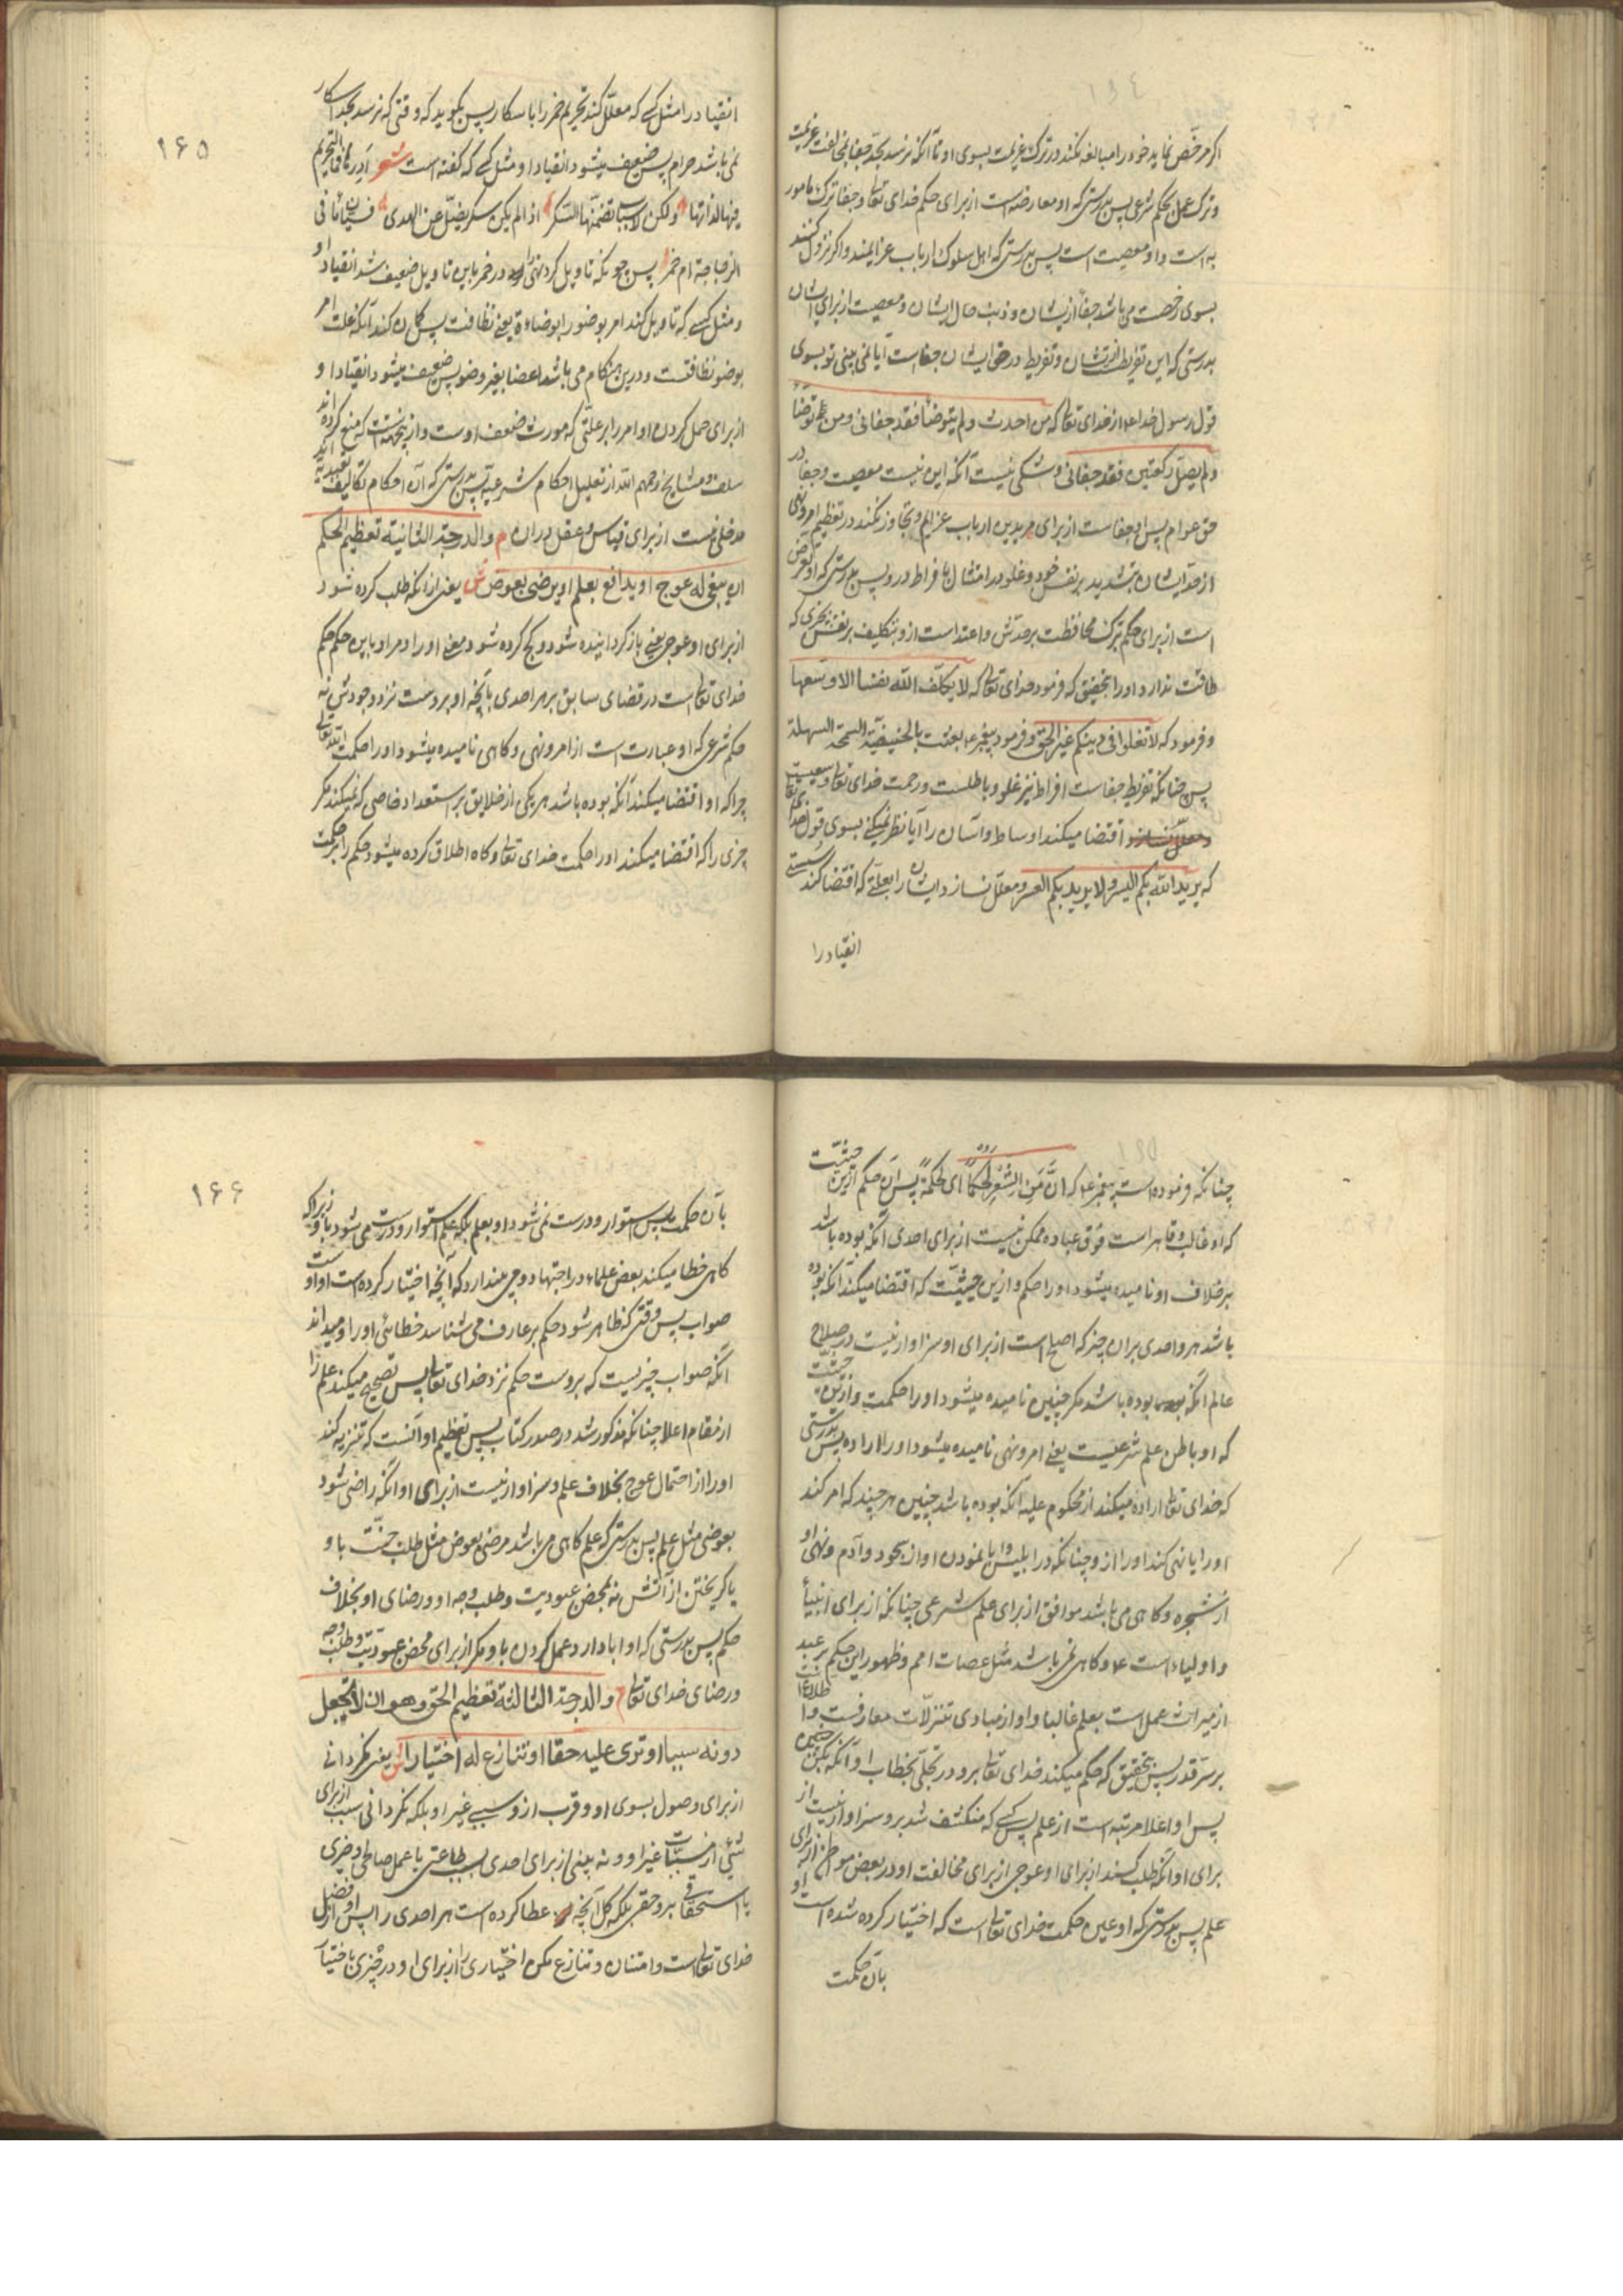 ۱۶۴
اگر مرخّص نماید خود را مبالغه نکند در ترک عزیمت بسوی او تا آنکه نرسد بحدّ جفا بمخالفت عزیمت
و ترک عمل بحکم شرعی پس بدرستی که او معارضه است از برای حکم خدای تعالی و جفا ترک مامور
به است و او معصیت است پس بدرستی که اهل سلوک ارباب عزایمند و اگر نزول کنند
بسوی رخصت می باشد جفا از یشان و ذنب حال ایشان و معصیت از برای ایشان
بدرستی که این تفریط از یشان و تفریط در حق ایشان جفاست آیا نمی بینی تو بسوی
قول رسول خدا ع از خدای تعالی که من احدث و لم یتوضأ فقد جفانی و من توضأ
و لم یصلّ رکعتین فقد جفانی و شکی نیست آنکه این نیست معصیت و جفا در
حق عوام پس او جفاست از برای مریدین ارباب عزایم و تجاوز نکند در تعظیم امر و نهی
از حدّ ایشان بتشدید بر نفس خود و غلو در امتثال با فراط در و پس بدرستی که او تعرض
است از برای حکم بترک محافظت بر حدّش و اعتداست از و بتکلیف بر نفس بچیزی که
طاقت ندارد او را بتحقیق که فرمود خدای تعالی که لا یکلّف الله نفسا الا وسعها
و فرمود که لا تغلوا فی دینکم غیر الحق و فرمود پیغمبر ع بعثت بالحنیفیّة السمحة السهلة
پس چنانکه تفریط جفاست افراط نیز غلو و باطلست و رحمت خدای تعالی وسیعست
اقتضا میکند اوساط و آسان را آیا نظر نمیکنی بسوی قول خدای تعالی
که یرید الله بکم الیسر و لا یرید بکم العسر و معلّل نسازد ایشان را بعلّتی که اقتضا کند سستی
انقیاد را
۱۶۵
انقیاد را مثل کسی که معلّل کند تحریم خمر را باسکار پس بگوید که وقتی که نرسد بحدّ اسکار
نمی باشد حرام پس ضعیف میشود انقیاد او مثل کسی که گفته است شعر ادرها فما التحریم
فیها لذاتها ولکن لاسباب تضمّنها السکر اذا لم یکن سکر یضلّ عن الهدی فسیّان ما فی
الزجاجة ام خمر پس چونکه تاویل کرد نهی در خمر باین تاویل ضعیف شد انقیاد او
و مثل کسی که تاویل کند امر بوضو را بوضاءة یعنی نظافت پس گمان کند آنکه علت امر
بوضو نظافتست و درین هنگام می باشد اعضا بغیر وضو پس ضعیف میشود انقیاد او
از برای حمل کردن او امر را بر علّتی که مورث ضعف اوست و ازینجهت است که منع کرده اند
سلف و مشایخ رحمهم الله از تعلیل احکام شرعیّه پس بدرستی که آن احکام تکالیف تعبدیّه اند
مدخلی نیست از برای قیاس و عقل در ان م و الدرجة الثانیة تعظیم الحکم
ان یبغی له عوج او یدافع بعلم او یرضی بعوض ش یعنی از آنکه طلب کرده شود
از برای او عوجی یعنی باز گردانیده شود و کج کرده شود معنی او را و مراد باین حکم حکم
خدای تعالی است در قضای سابق بر هر احدی بآنچه او بروست نزد وجودش نه
حکم شرعی که او عبارت است از امر و نهی و گاهی نامیده میشود او را حکمت الله تعالی
چرا که او اقتضا میکند آنکه بوده باشد هر یکی از خلایق بر استعداد خاصی که نمیکند مگر
چیزی را که اقتضا میکند او را حکمت خدای تعالی و گاه اطلاق کرده میشود حکم را بر حکمت
چنانکه فرموده است پیغمبر ع که انّ من الشعر لحکما ای لحکمة پس آن حکم ازین حیثیّت
که او غالب و قاهر است فوق عباده ممکن نیست از برای احدی آنکه بوده باشد
بر خلاف او نامیده میشود او را حکم و ازین حیثیّت که اقتضا میکند آنکه بوده
باشد هر واحدی بران چیز که اصلح است از برای او سزاوار نیست در صلاح
عالم آنکه بوده باشد مگر چنین نامیده میشود او را حکمت و ازین حیثیّت
که او باطن علم شرعیست یعنی امر و نهی نامیده میشود او را اراده پس بدرستی
که خدای تعالی اراده میکند از محکوم علیه آنکه بوده باشد چنین هر چند که امر کند
او را یا نهی کند او را از و چنانکه در ابلیس وابا نمودن او از سجود و آدم و نهی او
از شجره و گاهی می باشد موافق از برای علم شرعی چنانکه از برای انبیأ
و اولیاست ع و گاهی نمی باشد مثل عصات امم و ظهور این حکم بر عبد
از میراث عمل است بعلم غالبا و او از مبادی تنزلّات معارفست و اطلاعات
بر سرّ قدر پس بتحقیق که حکم میکند خدای تعالی برو در تجلّی بخطاب او آنکه بکن چنین
پس او اعلا مرتبه است از علم پس کسی که منکشف شد برو سزاوار نیست از
برای او آنکه طلب کند از برای او عوجی از برای مخالفت او در بعض مواطن از برای
علم پس بدرستی که او عین حکمت خدای تعالی است که اختیار کرده شده است او
بان حکمت
۱۶۶
بآن حکمت پس استوار و درست نمی شود او بعلم بلکه علم استوار و درست می شود باو زیرا که
گاهی خطا میکند بعض علماء در اجتهاد و وجی پندارد که آنچه اختیار کرده است او او است
صواب پس وقتی که ظاهر شود حکم بر عارف می شناسد خطائی او را و میداند
آنکه صواب چیزیست که بروست حکم نزد خدای تعالی پس تصحیح میکند علم را
از مقام اعلا چنانکه مذکور شد در صدر کتاب پس تعظیم او آنست که تنزیه کند
او را از احتمال عوج بخلاف علم و سزاوار نیست از برای او آنکه راضی شود
بعوضی مثل علم پس بدرستی که علم گاهی می باشد مرضی بعوض مثل طلب جنّت باو
یا گریختن از آتش نه بمحض عبودیت و طلب وجه او و رضای او بخلاف
حکم پس بدرستی که او ابا دارد عمل کردن باو مگر از برای محض عبودیّت و طلب وجه
و رضای خدای تعالی م و الدرجة الثالثة تعظیم الحق و هو ان لا تجعل
دونه سببا او تری علیه حقا او تنازع له اختیارا ش یعنی نگردانی
از برای وصول بسوی او و قرب از و سببی غیر او بلکه نگردانی سبب از برای
شیٔ از مسبّبات غیر او و نه بینی از برای احدی بسبب طاعتی یا عمل صالحی و چیزی
یا استحقاقی برو حقی بلکه کل آنچه عطا کرده است هر احدی را پس او از فضل
خدای تعالی است و امتنان و تنازع مکن اختیاری را از برای او در چیزی باختیار